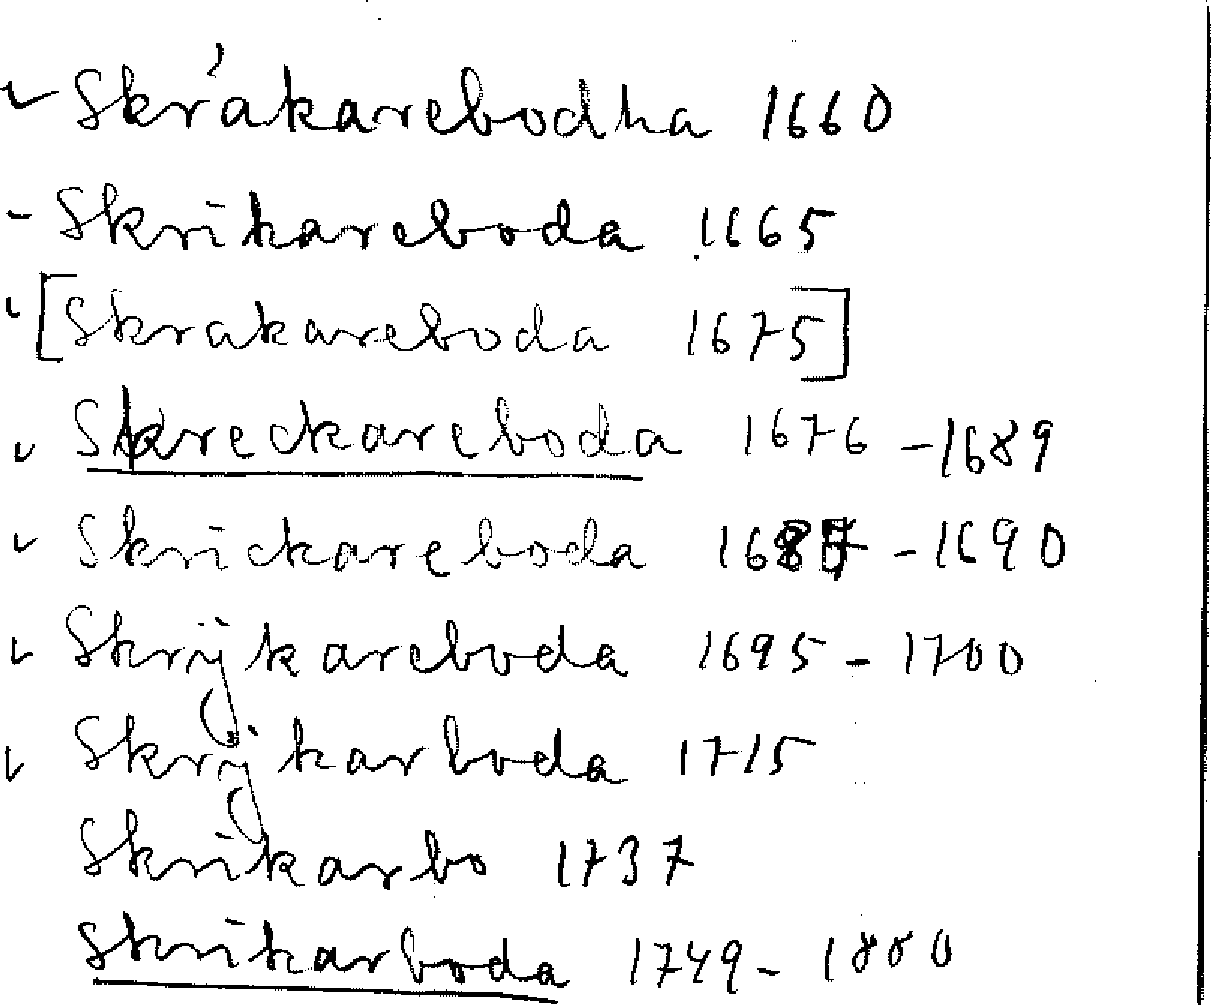 ✓ Skråkarebodha 1660
- Skrikareboda 1665
✓ [Skrakareboda 1675]
✓ Skreckareboda 1676 - 1689
✓ Skrickareboda 1687 - 1690
✓ Skrijkareboda 1695 - 1700
✓ Skrijkarboda 1715
Skrikarbo 1737
Skrikarboda 1749 - 1800